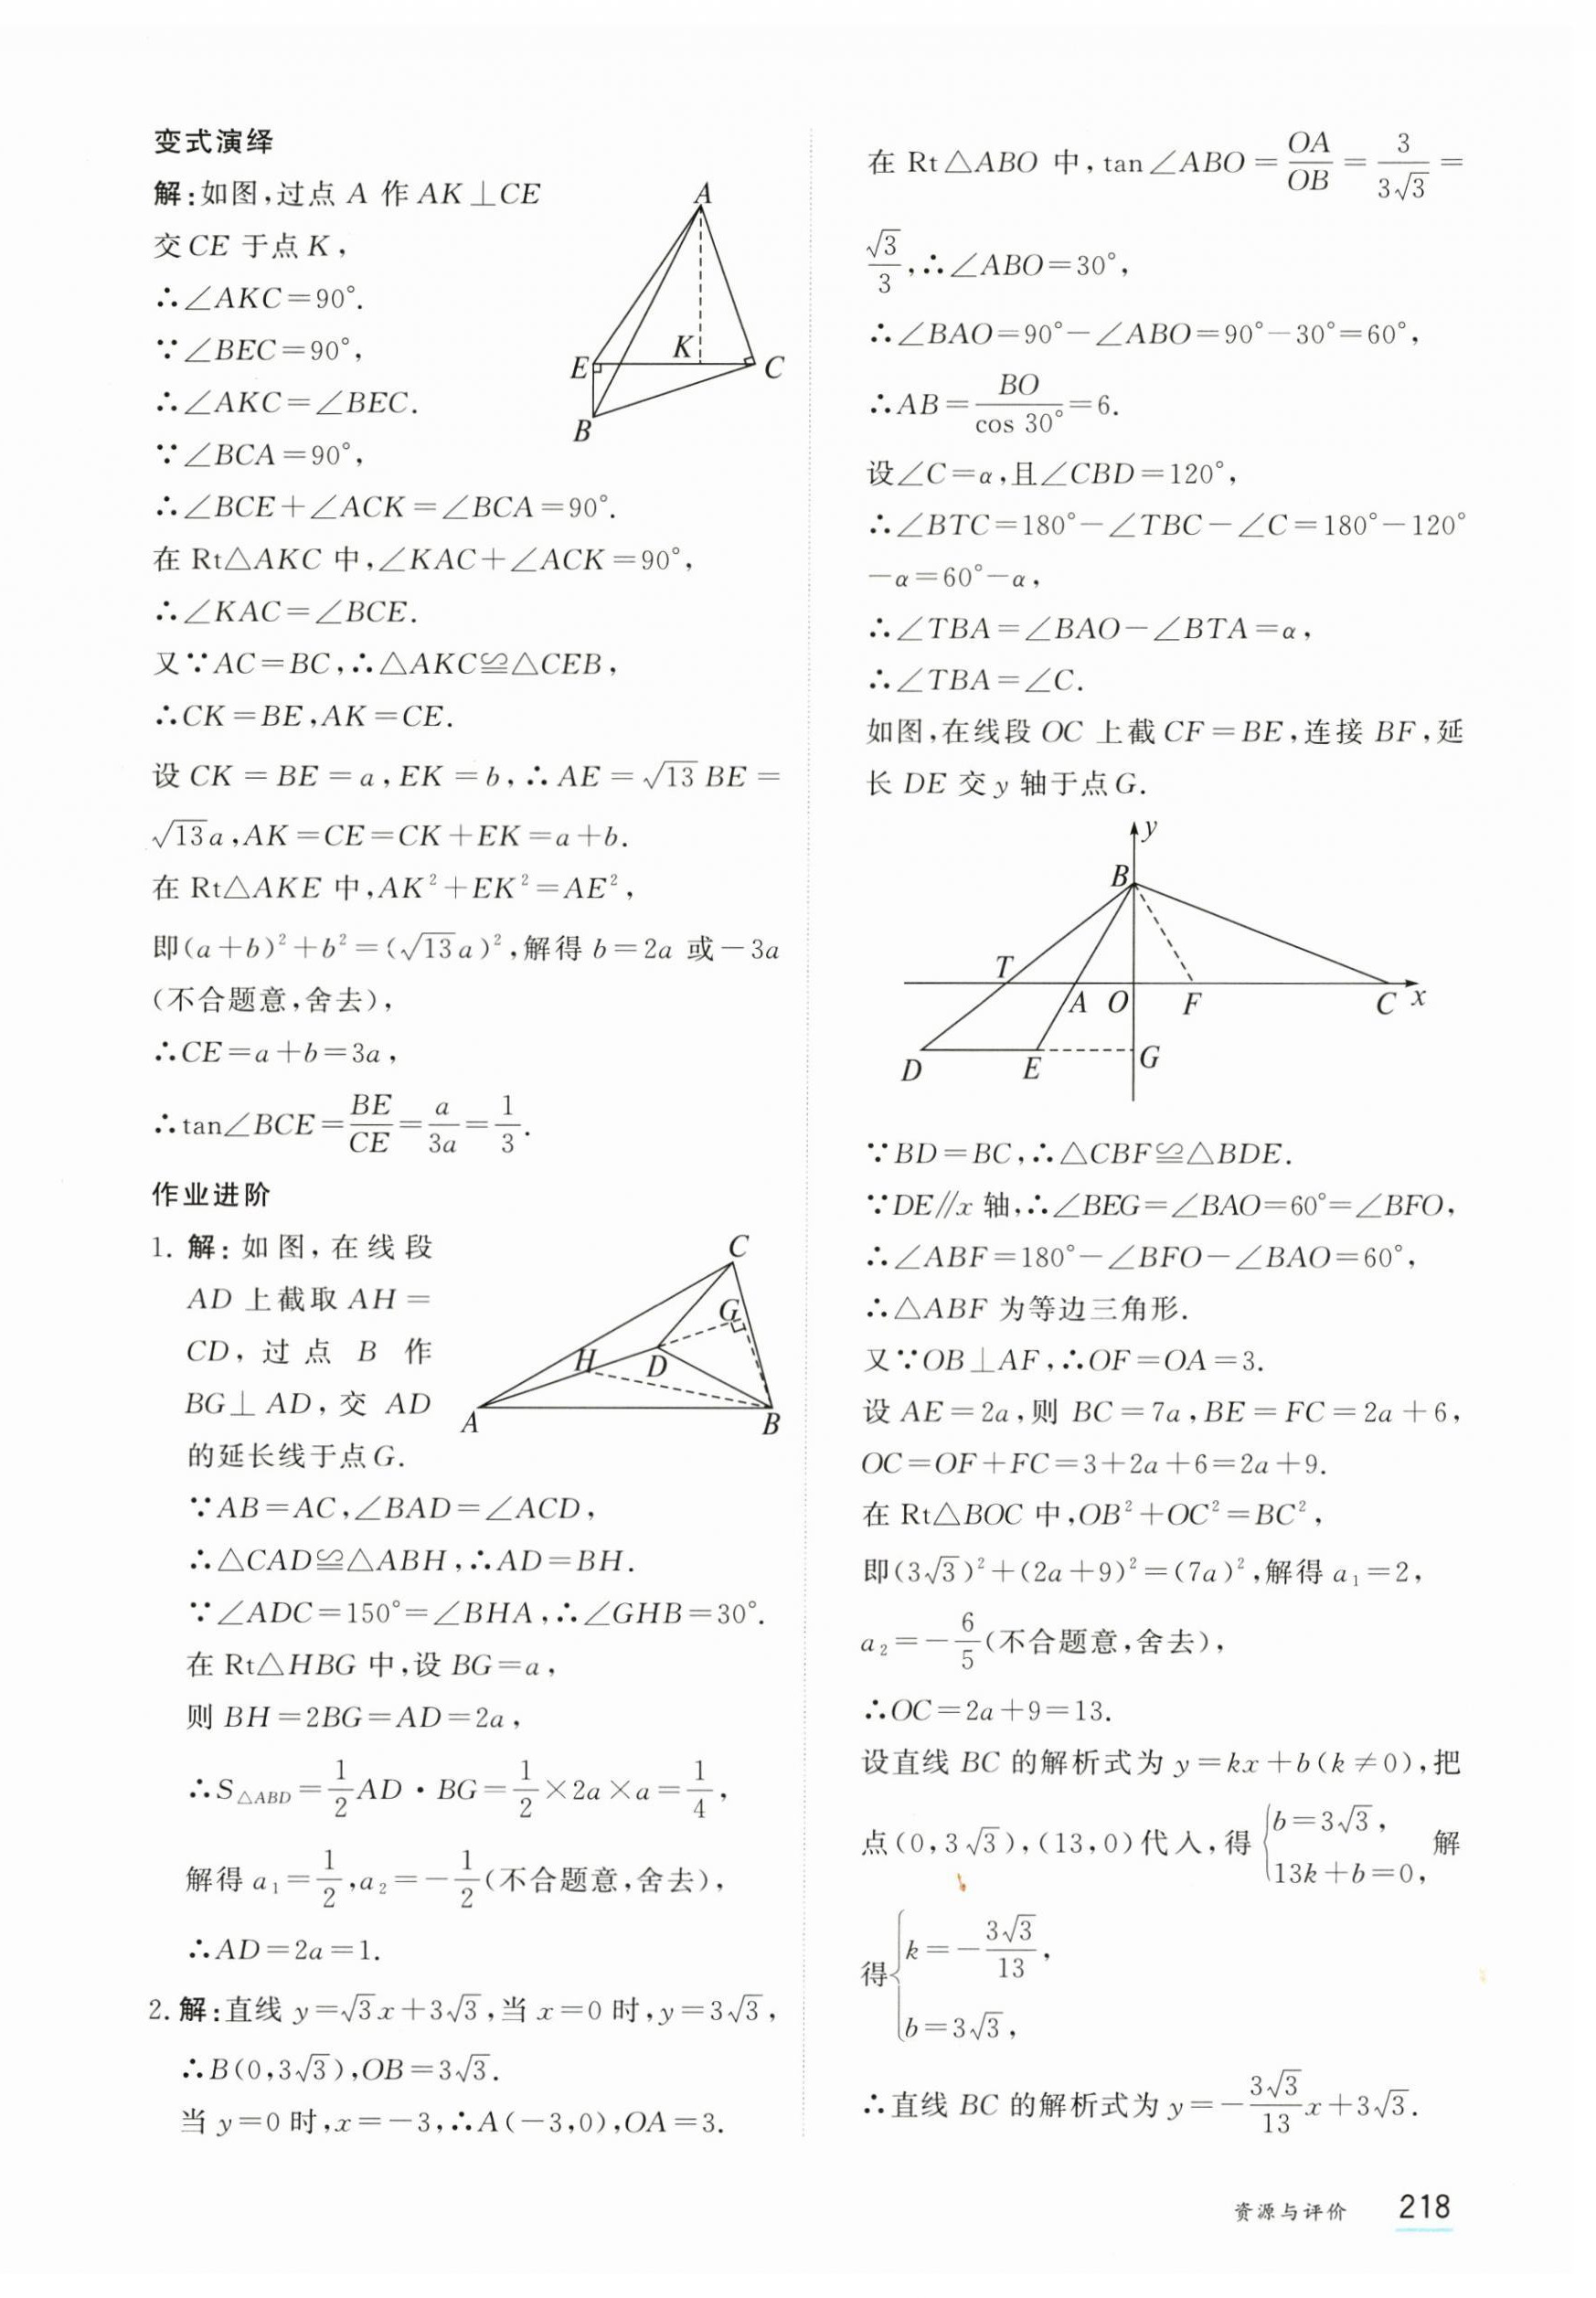 变式演绎
解:如图,过点 A 作 AK⊥CE
交 CE 于点 K,
∴∠AKC=90°.
∵∠BEC=90°,
∴∠AKC=∠BEC.
∵∠BCA=90°,
∴∠BCE+∠ACK=∠BCA=90°.
在 Rt△AKC 中,∠KAC+∠ACK=90°,
∴∠KAC=∠BCE.
又∵AC=BC,∴△AKC≌△CEB,
∴CK=BE,AK=CE.
设 CK=BE=a,EK=b,∴AE=√13 BE=
√13 a,AK=CE=CK+EK=a+b.
在 Rt△AKE 中,AK²+EK²=AE²,
即(a+b)²+b²=(√13 a)²,解得 b=2a 或-3a
(不合题意,舍去),
∴CE=a+b=3a,
∴tan∠BCE=BE/CE=a/3a=1/3.
A
K
E
C
B
作业进阶
1. 解:如图,在线段
AD 上截取 AH=
CD,过点 B 作
BG⊥AD,交 AD
的延长线于点 G.
C
G
H
D
A
B
∵AB=AC,∠BAD=∠ACD,
∴△CAD≌△ABH,∴AD=BH.
∵∠ADC=150°=∠BHA,∴∠GHB=30°.
在 Rt△HBG 中,设 BG=a,
则 BH=2BG=AD=2a,
∴S△ABD=1/2 AD·BG=1/2×2a×a=1/4,
解得 a₁=1/2,a₂=-1/2(不合题意,舍去),
∴AD=2a=1.
2. 解:直线 y=√3x+3√3,当 x=0 时,y=3√3,
∴B(0,3√3),OB=3√3.
当 y=0 时,x=-3,∴A(-3,0),OA=3.
在 Rt△ABO 中,tan∠ABO=OA/OB=3/3√3=
√3/3,∴∠ABO=30°,
∴∠BAO=90°-∠ABO=90°-30°=60°,
∴AB=BO/cos 30°=6.
设∠C=α,且∠CBD=120°,
∴∠BTC=180°-∠TBC-∠C=180°-120°
-α=60°-α,
∴∠TBA=∠BAO-∠BTA=α,
∴∠TBA=∠C.
如图,在线段 OC 上截 CF=BE,连接 BF,延
长 DE 交 y 轴于点 G.
y
B
T
A
O
F
C
x
D
E
G
∵BD=BC,∴△CBF≌△BDE.
∵DE∥x 轴,∴∠BEG=∠BAO=60°=∠BFO,
∴∠ABF=180°-∠BFO-∠BAO=60°,
∴△ABF 为等边三角形.
又∵OB⊥AF,∴OF=OA=3.
设 AE=2a,则 BC=7a,BE=FC=2a+6,
OC=OF+FC=3+2a+6=2a+9.
在 Rt△BOC 中,OB²+OC²=BC²,
即(3√3)²+(2a+9)²=(7a)²,解得 a₁=2,
a₂=-6/5(不合题意,舍去),
∴OC=2a+9=13.
设直线 BC 的解析式为 y=kx+b(k≠0),把
点(0,3√3),(13,0)代入,得{b=3√3, 13k+b=0, 解
得{k=-3√3/13, b=3√3,
∴直线 BC 的解析式为 y=-3√3/13 x+3√3.
资源与评价 218